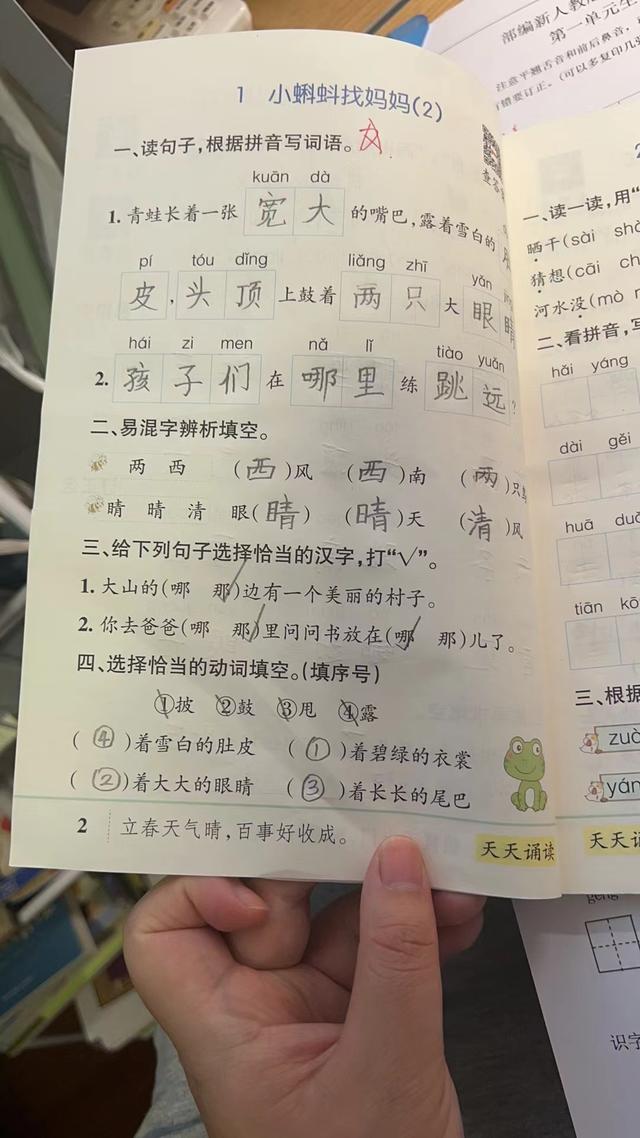 部编新人教
第一单元生
注意平翘舌音和前后鼻音，
错要订正。(可以多复印几
1 小蝌蚪找妈妈(2)
一、读句子，根据拼音写词语。
kuān dà
1. 青蛙长着一张 宽大 的嘴巴，露着雪白的
pí tóu dǐng liǎng zhī yǎn
皮，头顶 上鼓着 两只 大 眼睛
hái zi men nǎ lǐ tiào yuǎn
2. 孩子们 在 哪里 练 跳远？
二、易混字辨析填空。
两 西 (西)风 (西)南 (两)只
晴 睛 清 眼(睛) (晴)天 (清)风
三、给下列句子选择恰当的汉字，打“√”。
1. 大山的(哪 那)边有一个美丽的村子。
2. 你去爸爸(哪 那)里问问书放在(哪 那)儿了。
四、选择恰当的动词填空。(填序号)
①披 ②鼓 ③甩 ④露
(④)着雪白的肚皮 (①)着碧绿的衣裳
(②)着大大的眼睛 (③)着长长的尾巴
2 立春天气晴，百事好收成。
天天诵读
一、读一读，用“
晒干(sài shà
猜想(cāi ch
河水没(mò m
二、看拼音，写
hǎi yáng
dài gěi
huā duǒ
tiān kō
三、根据
zuò
yán
天天诵
识字